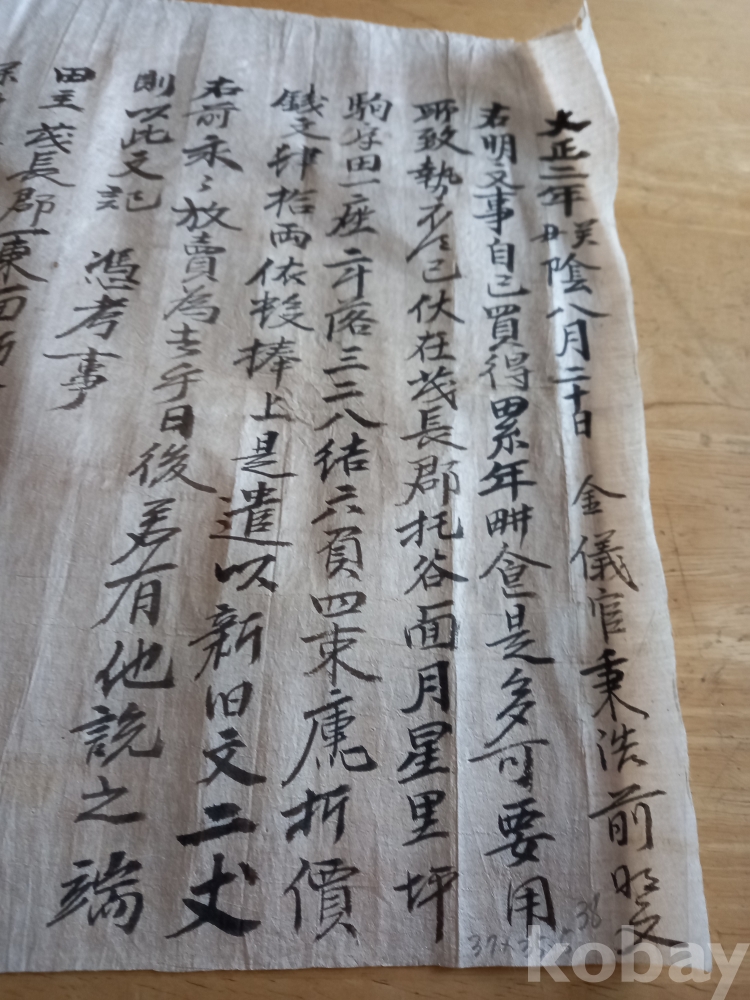 大正二年癸丑陰八月二十日 金儀官秉浩前明文
右明文事自己買得累年畊食是多可要用
所致勢不得已伏在茂長郡托谷面月星里坪
駒字田一座二斗落三三八結六負四束庫折價
錢文肆拾兩依數捧上是遣以新旧文二丈
右前永々放賣為去乎日後若有他說之端
則以此文記 憑考事
田主 茂長郡一東面
kobay